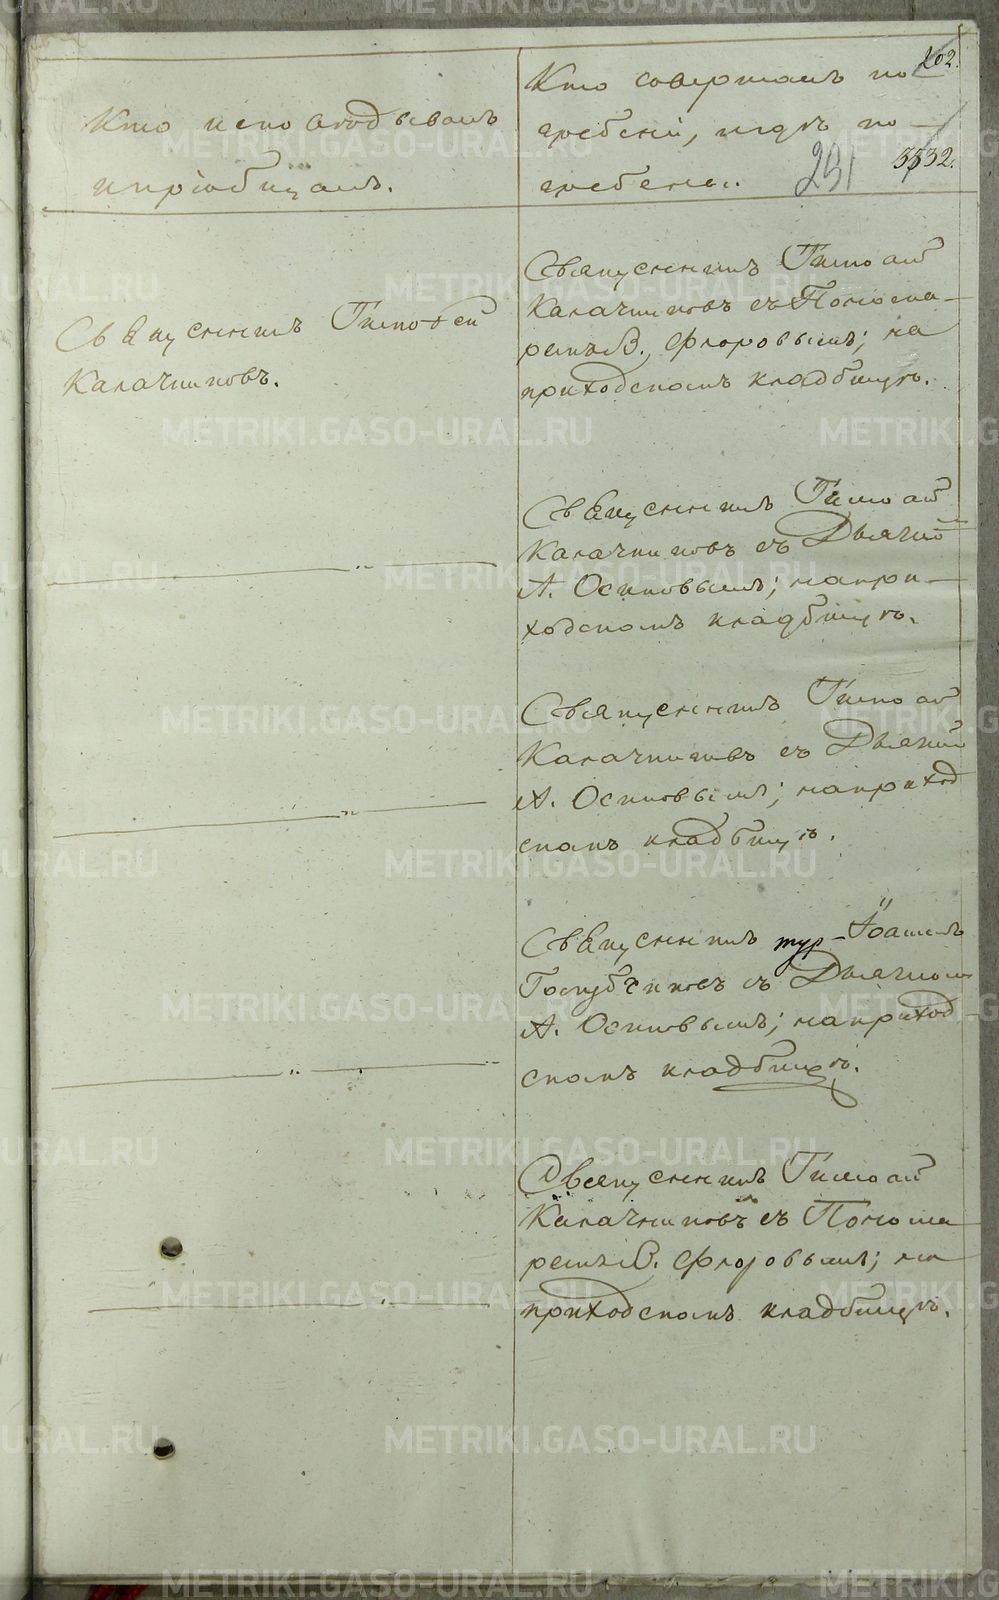 202.
Кто исповѣдывалъ
и пріобщалъ.
Кто совершалъ по
гребеніе, и гдѣ по
гребены.
291
3532.
Священникъ Тимофей
Калачниковъ.
Священникъ Тимофей
Калачниковъ съ Понома
ремъ В. Флоровымъ; на
приходскомъ кладбищѣ.
— „ —
Священникъ Тимофей
Калачниковъ съ Дьячкомъ
А. Осиповымъ; на при
ходскомъ кладбищѣ.
— „ —
Священникъ Тимофей
Калачниковъ съ Дьячкомъ
А. Осиповымъ; на приход
скомъ кладбищѣ.
— „ —
Священникъ Іоаннъ
Голубчиковъ съ Дьячкомъ
А. Осиповымъ; на приход
скомъ кладбищѣ.
— „ —
Священникъ Тимофей
Калачниковъ съ Понома
ремъ В. Флоровымъ; на
приходскомъ кладбищѣ.
METRIKI.GASO-URAL.RU